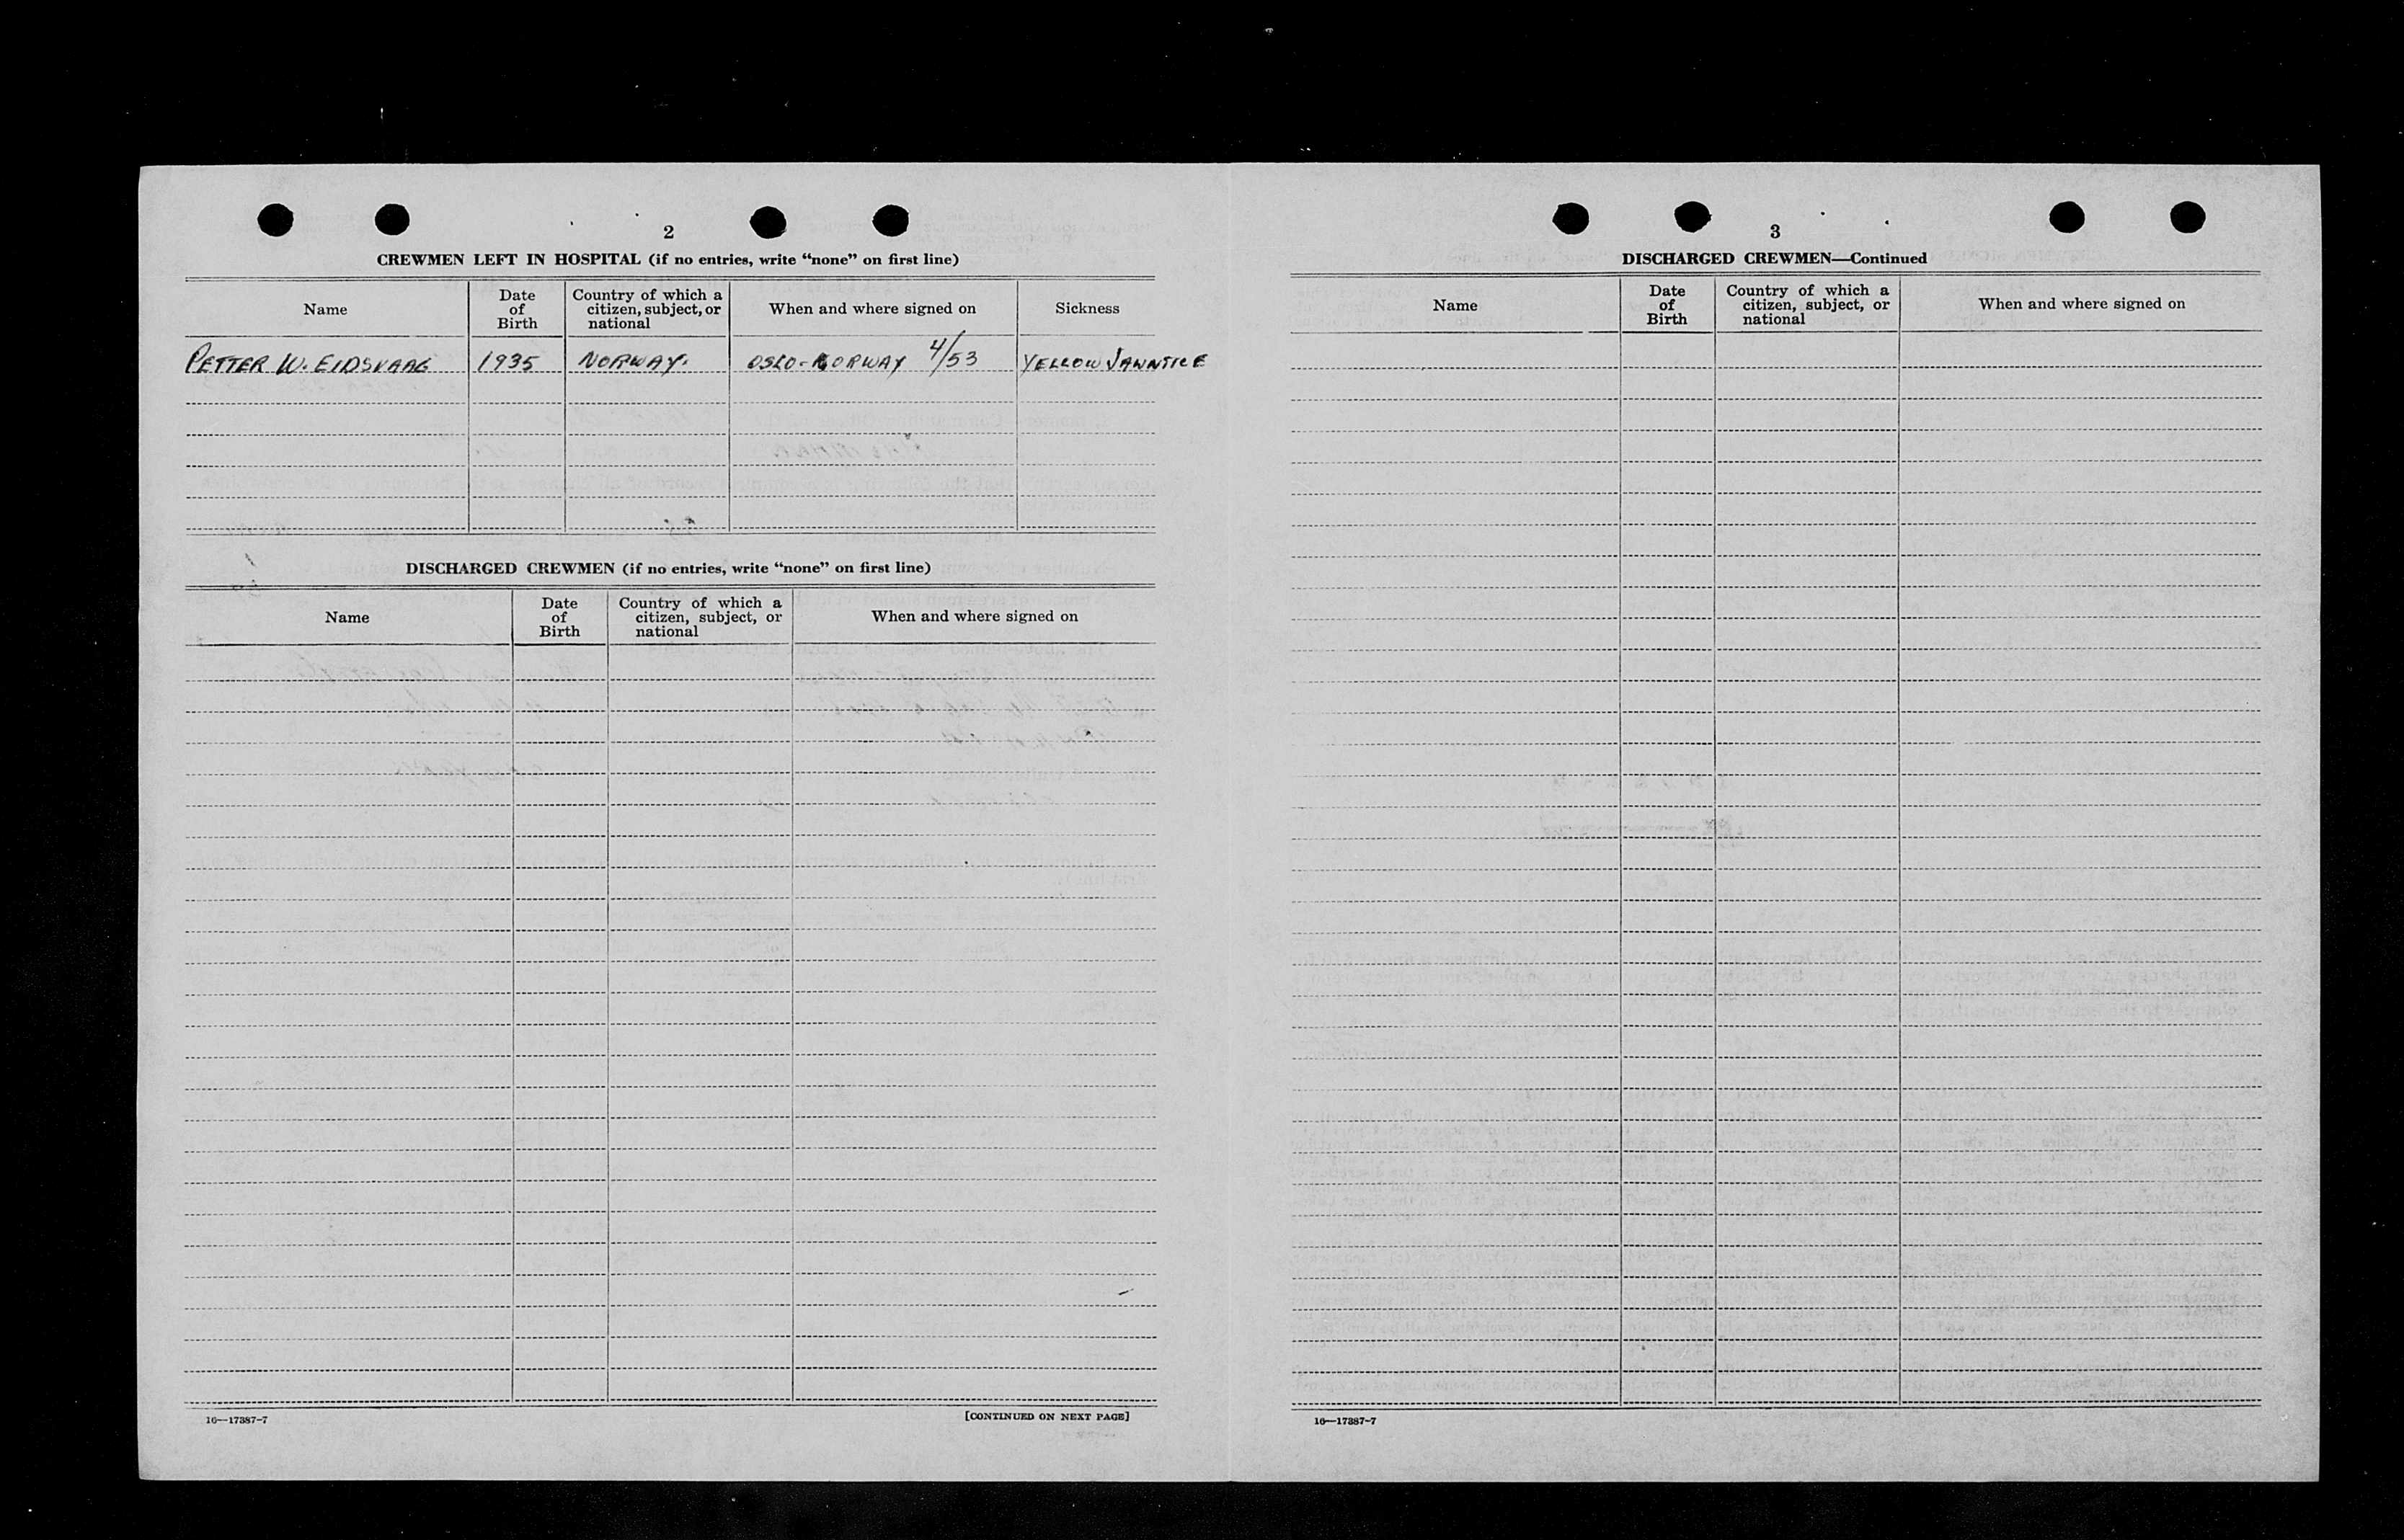 2
CREWMEN LEFT IN HOSPITAL (if no entries, write “none” on first line)
Name
Date of Birth
Country of which a citizen, subject, or national
When and where signed on
Sickness
PETTER W. EIDSVAAG 1935 NORWAY. OSLO-NORWAY 4/53 YELLOW JAWNTICE
DISCHARGED CREWMEN (if no entries, write “none” on first line)
Name
Date of Birth
Country of which a citizen, subject, or national
When and where signed on
16—17387-7
[CONTINUED ON NEXT PAGE]
3
DISCHARGED CREWMEN—Continued
Name
Date of Birth
Country of which a citizen, subject, or national
When and where signed on
16—17387-7